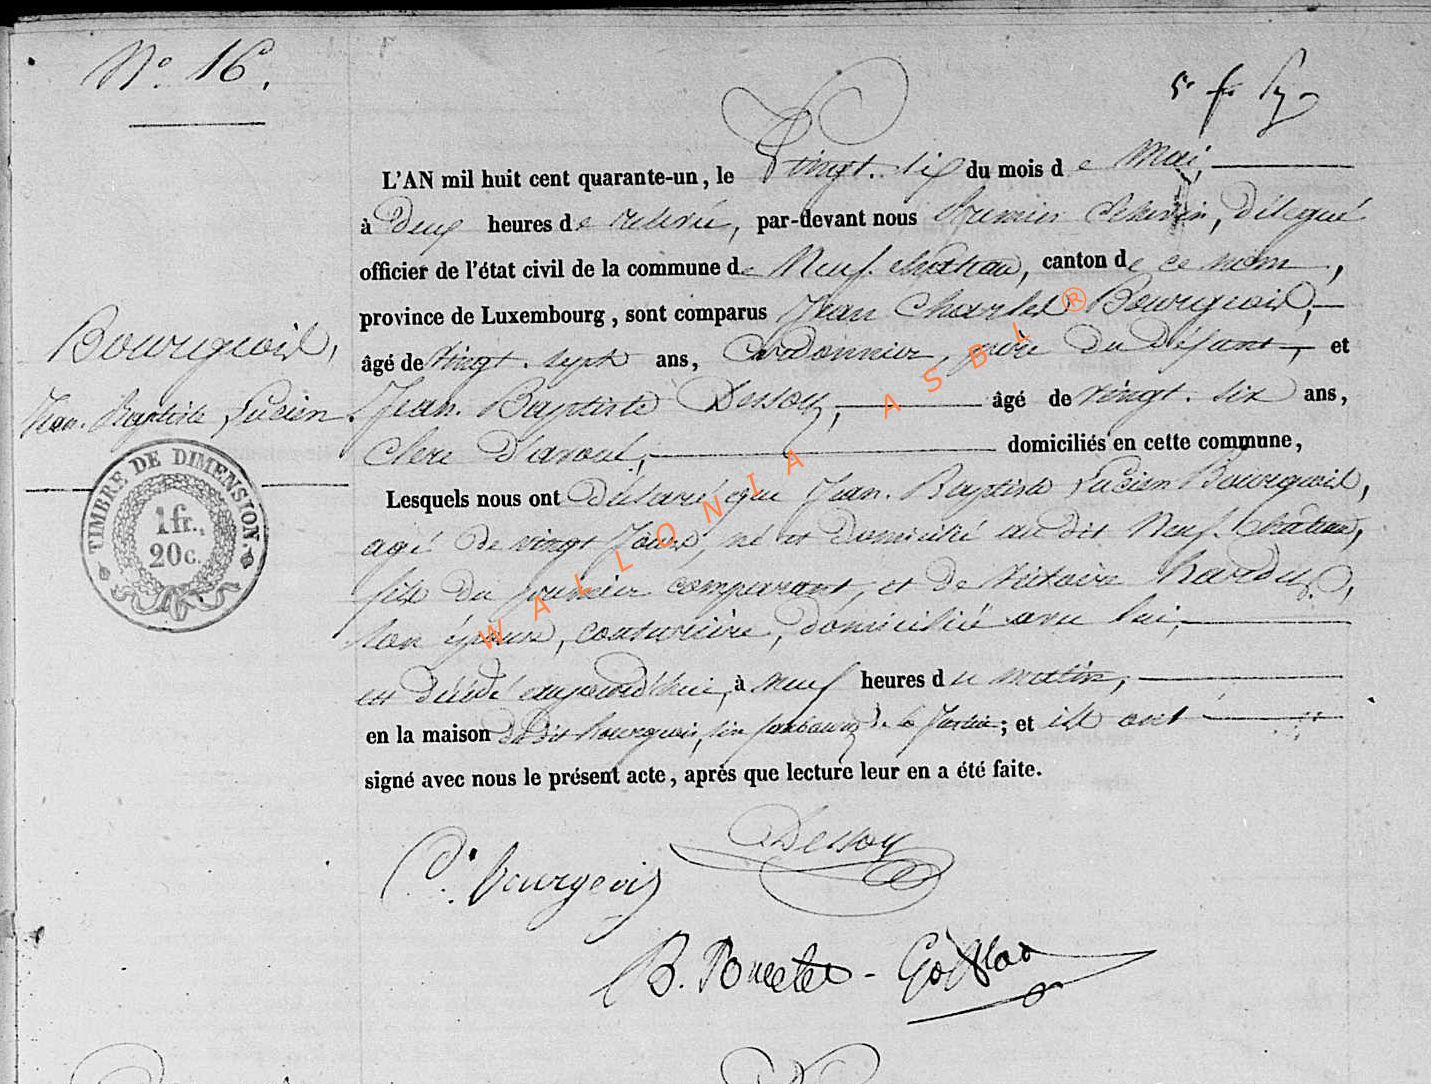 N° 16.
L'AN mil huit cent quarante-un, le Vingt-six du mois de Mai,
à Deux heures de relevée, par-devant nous Premier Echevin, Délégué
officier de l'état civil de la commune de Neufchâteau, canton de ce nom,
province de Luxembourg, sont comparus Jean Charles Bourgeois,
âgé de vingt-sept ans, Cordonnier, père du Défunt, et
Jean-Baptiste Dessoy, âgé de vingt-six ans,
Clerc d'avoué, domiciliés en cette commune,
Bourgeois,
Jean-Baptiste Lucien.
TIMBRE DE DIMENSION.
1 fr.,
20 c.
Lesquels nous ont déclaré que Jean-Baptiste Lucien Bourgeois,
agé de vingt Jours, né et domicilié au dit Neufchâteau,
fils du premier comparant, et de Victoire
son épouse, couturière, domiciliée avec lui,
est décédé aujourd'hui, à neuf heures du matin,
en la maison du dit Bourgeois, sise faubourg de la ; et ils ont
signé avec nous le présent acte, après que lecture leur en a été faite.
Dessoy
C. bourgeois
B. Poncelet - Gofflot
WALLONIA ASBL ®